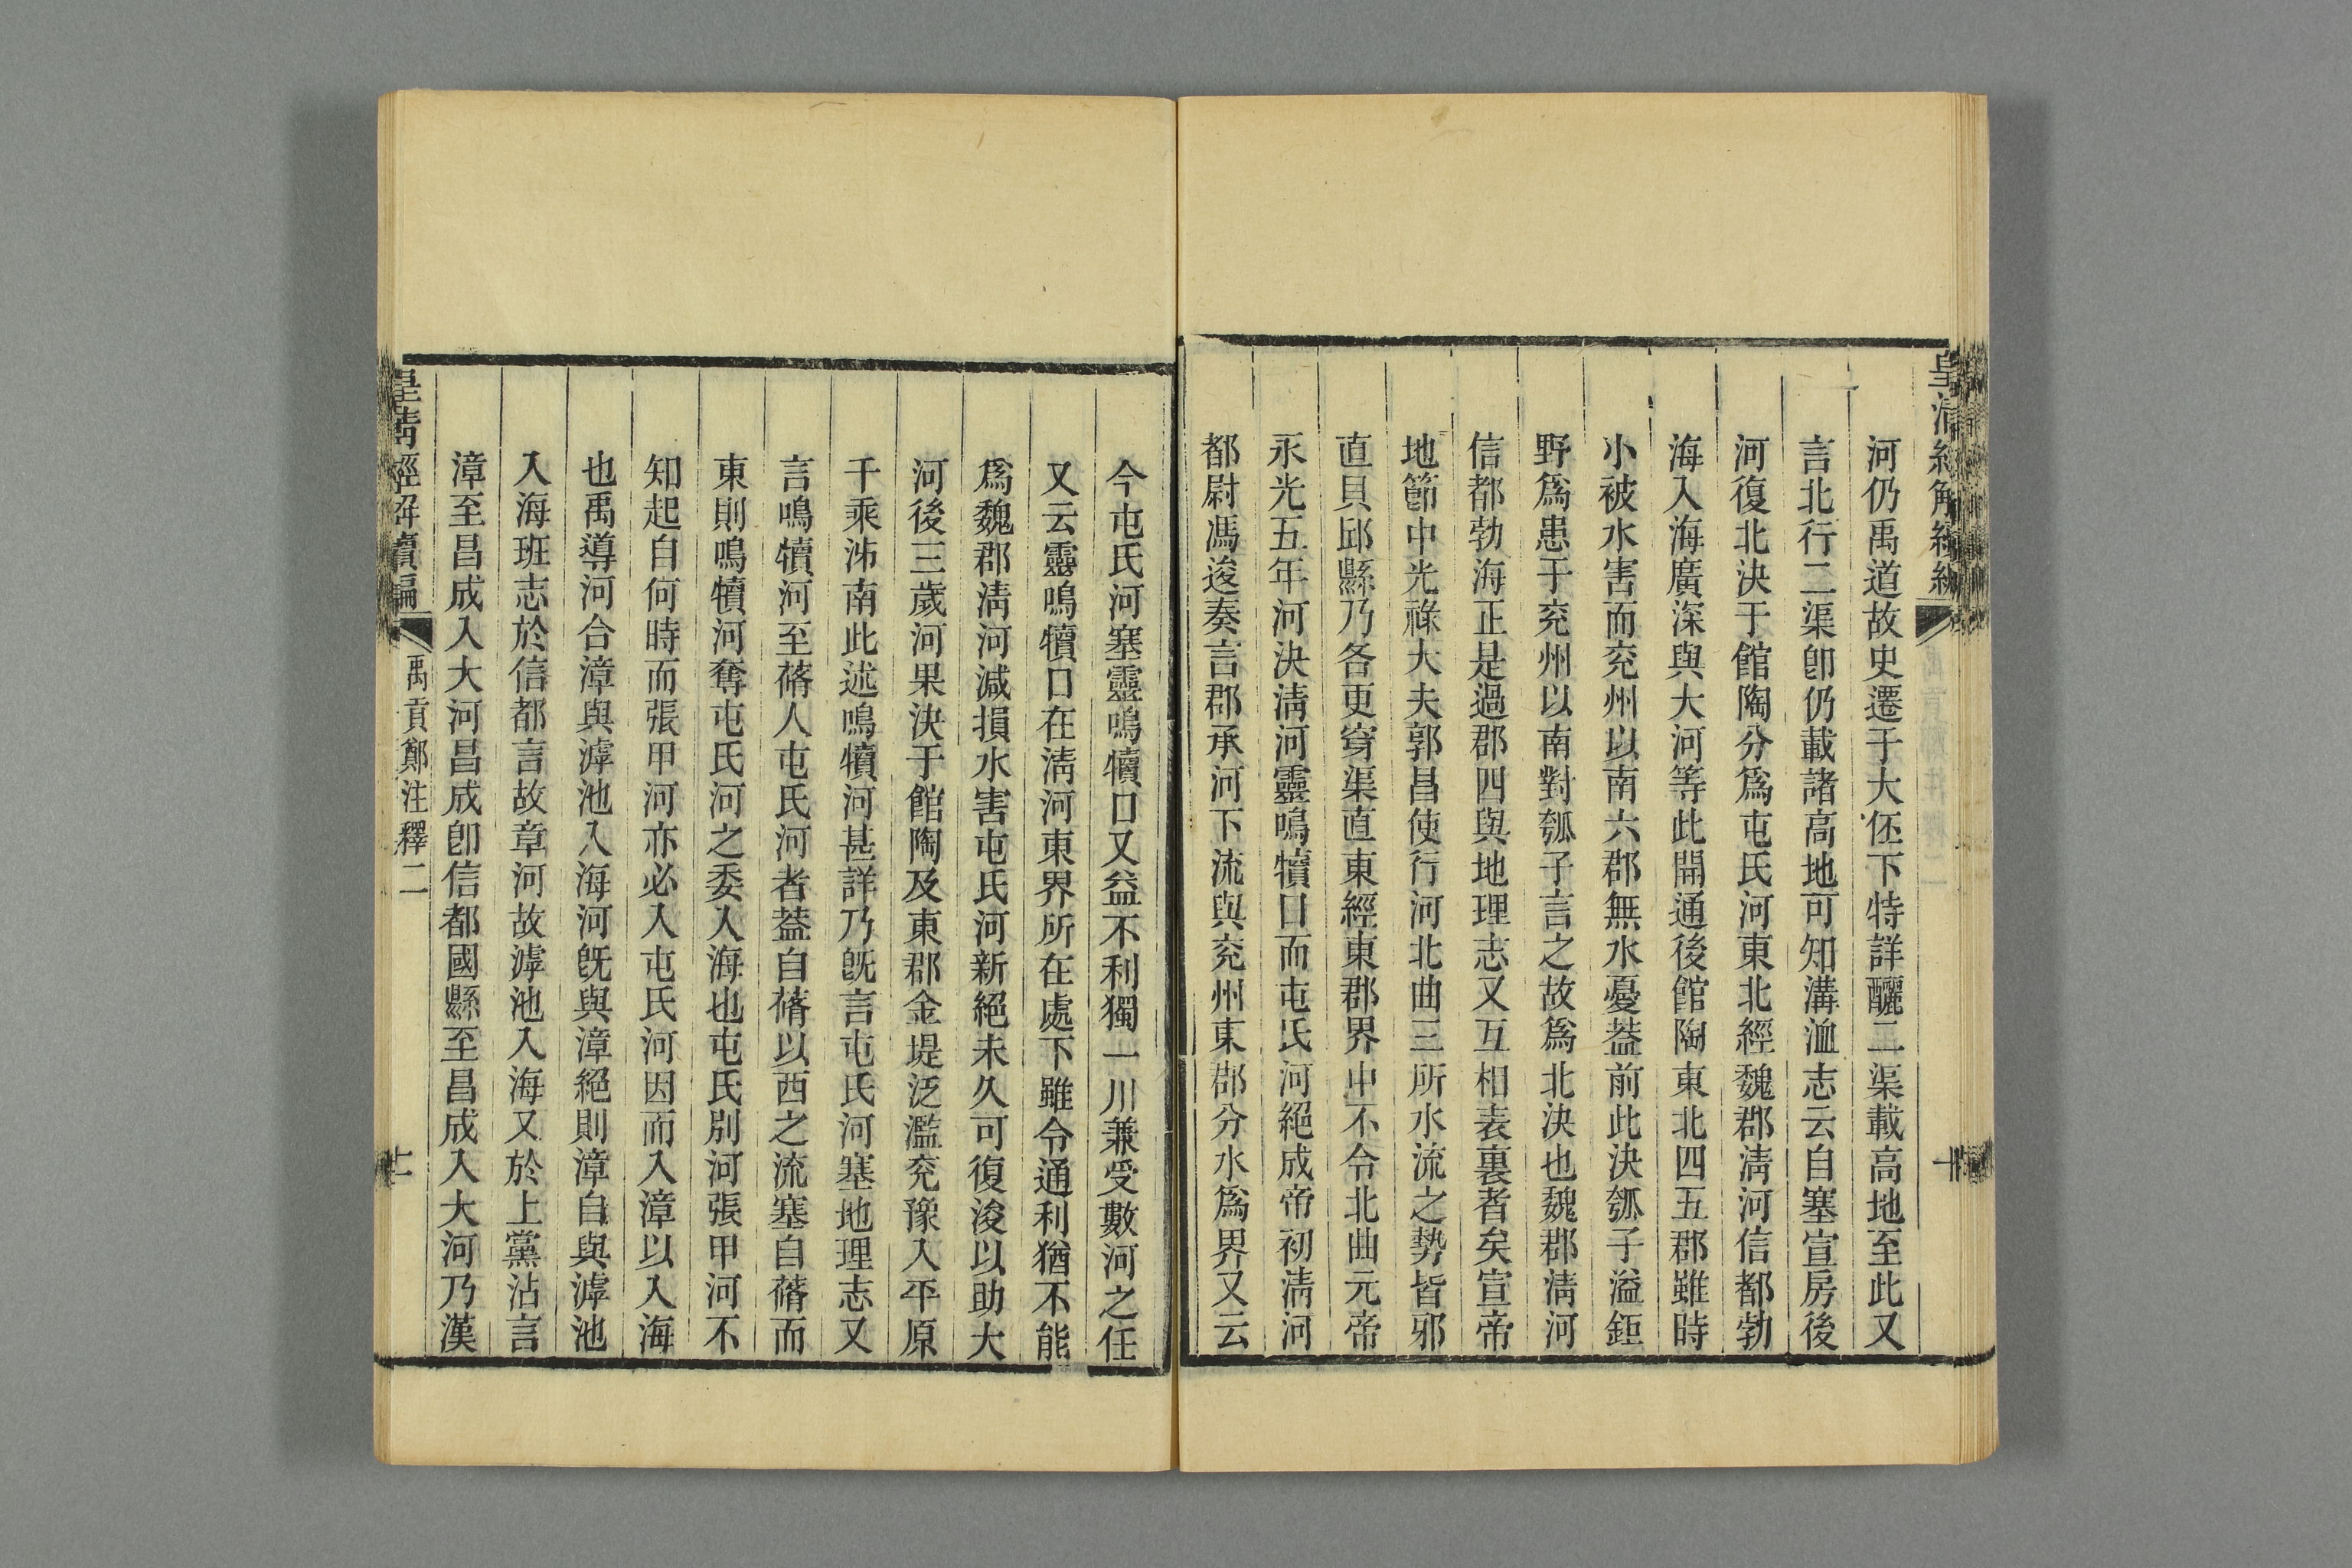 皇清經解續編
河仍禹道故史遷于大伾下特詳釃二渠載高地至此又
言北行二渠卽仍載諸高地可知溝洫志云自塞宣房後
河復北決于館陶分爲屯氏河東北經魏郡淸河信都勃
海入海廣深與大河等此開通後館陶東北四五郡雖時
小被水害而兖州以南六郡無水憂葢前此決瓠子溢鉅
野爲患于兖州以南對瓠子言之故爲北決也魏郡淸河
信都勃海正是過郡四與地理志又互相表裏者矣宣帝
地節中光祿大夫郭昌使行河北曲三所水流之勢皆邪
直貝邱縣乃各更穿渠直東經東郡界中不令北曲元帝
永光五年河決淸河靈鳴犢口而屯氏河絕成帝初淸河
都尉馮逡奏言郡承河下流與兖州東郡分水爲界又云
今屯氏河塞靈鳴犢口又益不利獨一川兼受數河之任
又云靈鳴犢口在淸河東界所在處下雖令通利猶不能
爲魏郡淸河減損水害屯氏河新絕未久可復浚以助大
河後三歲河果決于館陶及東郡金堤泛濫兖豫入平原
千乘泲南此述鳴犢河甚詳乃旣言屯氏河塞地理志又
言鳴犢河至蓨入屯氏河者葢自蓨以西之流塞自蓨而
東則鳴犢河奪屯氏河之委入海也屯氏別河張甲河不
知起自何時而張甲河亦必入屯氏河因而入漳以入海
也禹導河合漳與滹池入海河旣與漳絕則漳自與滹池
入海班志於信都言故章河故滹池入海又於上黨沾言
漳至昌成入大河昌成卽信都國縣至昌成入大河乃漢
皇淸經解續編
禹貢鄭注釋二
十一